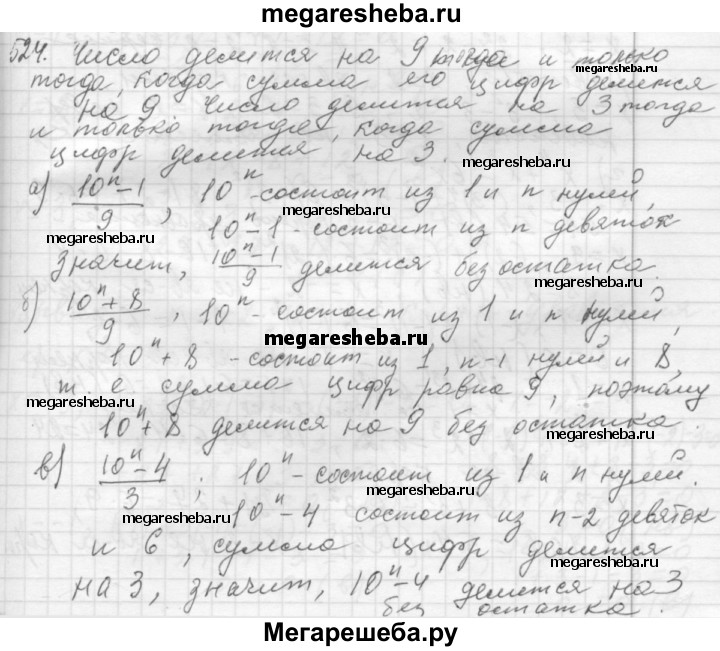 megaresheba.ru
524. Число делится на 9 тогда и только
тогда, когда сумма его цифр делится
на 9. Число делится на 3 тогда
и только тогда, когда сумма
цифр делится на 3.
megaresheba.ru
а) (10ⁿ-1)/9, 10ⁿ-состоит из 1 и n нулей,
megaresheba.ru
10ⁿ-1-состоит из n девяток
megaresheba.ru
megaresheba.ru
Значит, (10ⁿ-1)/9 делится без остатка.
б) (10ⁿ+8)/9, 10ⁿ-состоит из 1 и n нулей,
megaresheba.ru
10ⁿ+8 -состоит из 1, n-1 нулей и 8,
т. е сумма цифр равна 9, поэтому
megaresheba.ru
megaresheba.ru
10ⁿ+8 делится на 9 без остатка.
в) (10ⁿ-4)/3; 10ⁿ-состоит из 1 и n нулей.
megaresheba.ru
megaresheba.ru
10ⁿ-4 состоит из n-2 девяток
и 6, сумма цифр делится
megaresheba.ru
на 3, значит, 10ⁿ-4 делится на 3
megaresheba.ru
без остатка.
Мегарешеба.ру